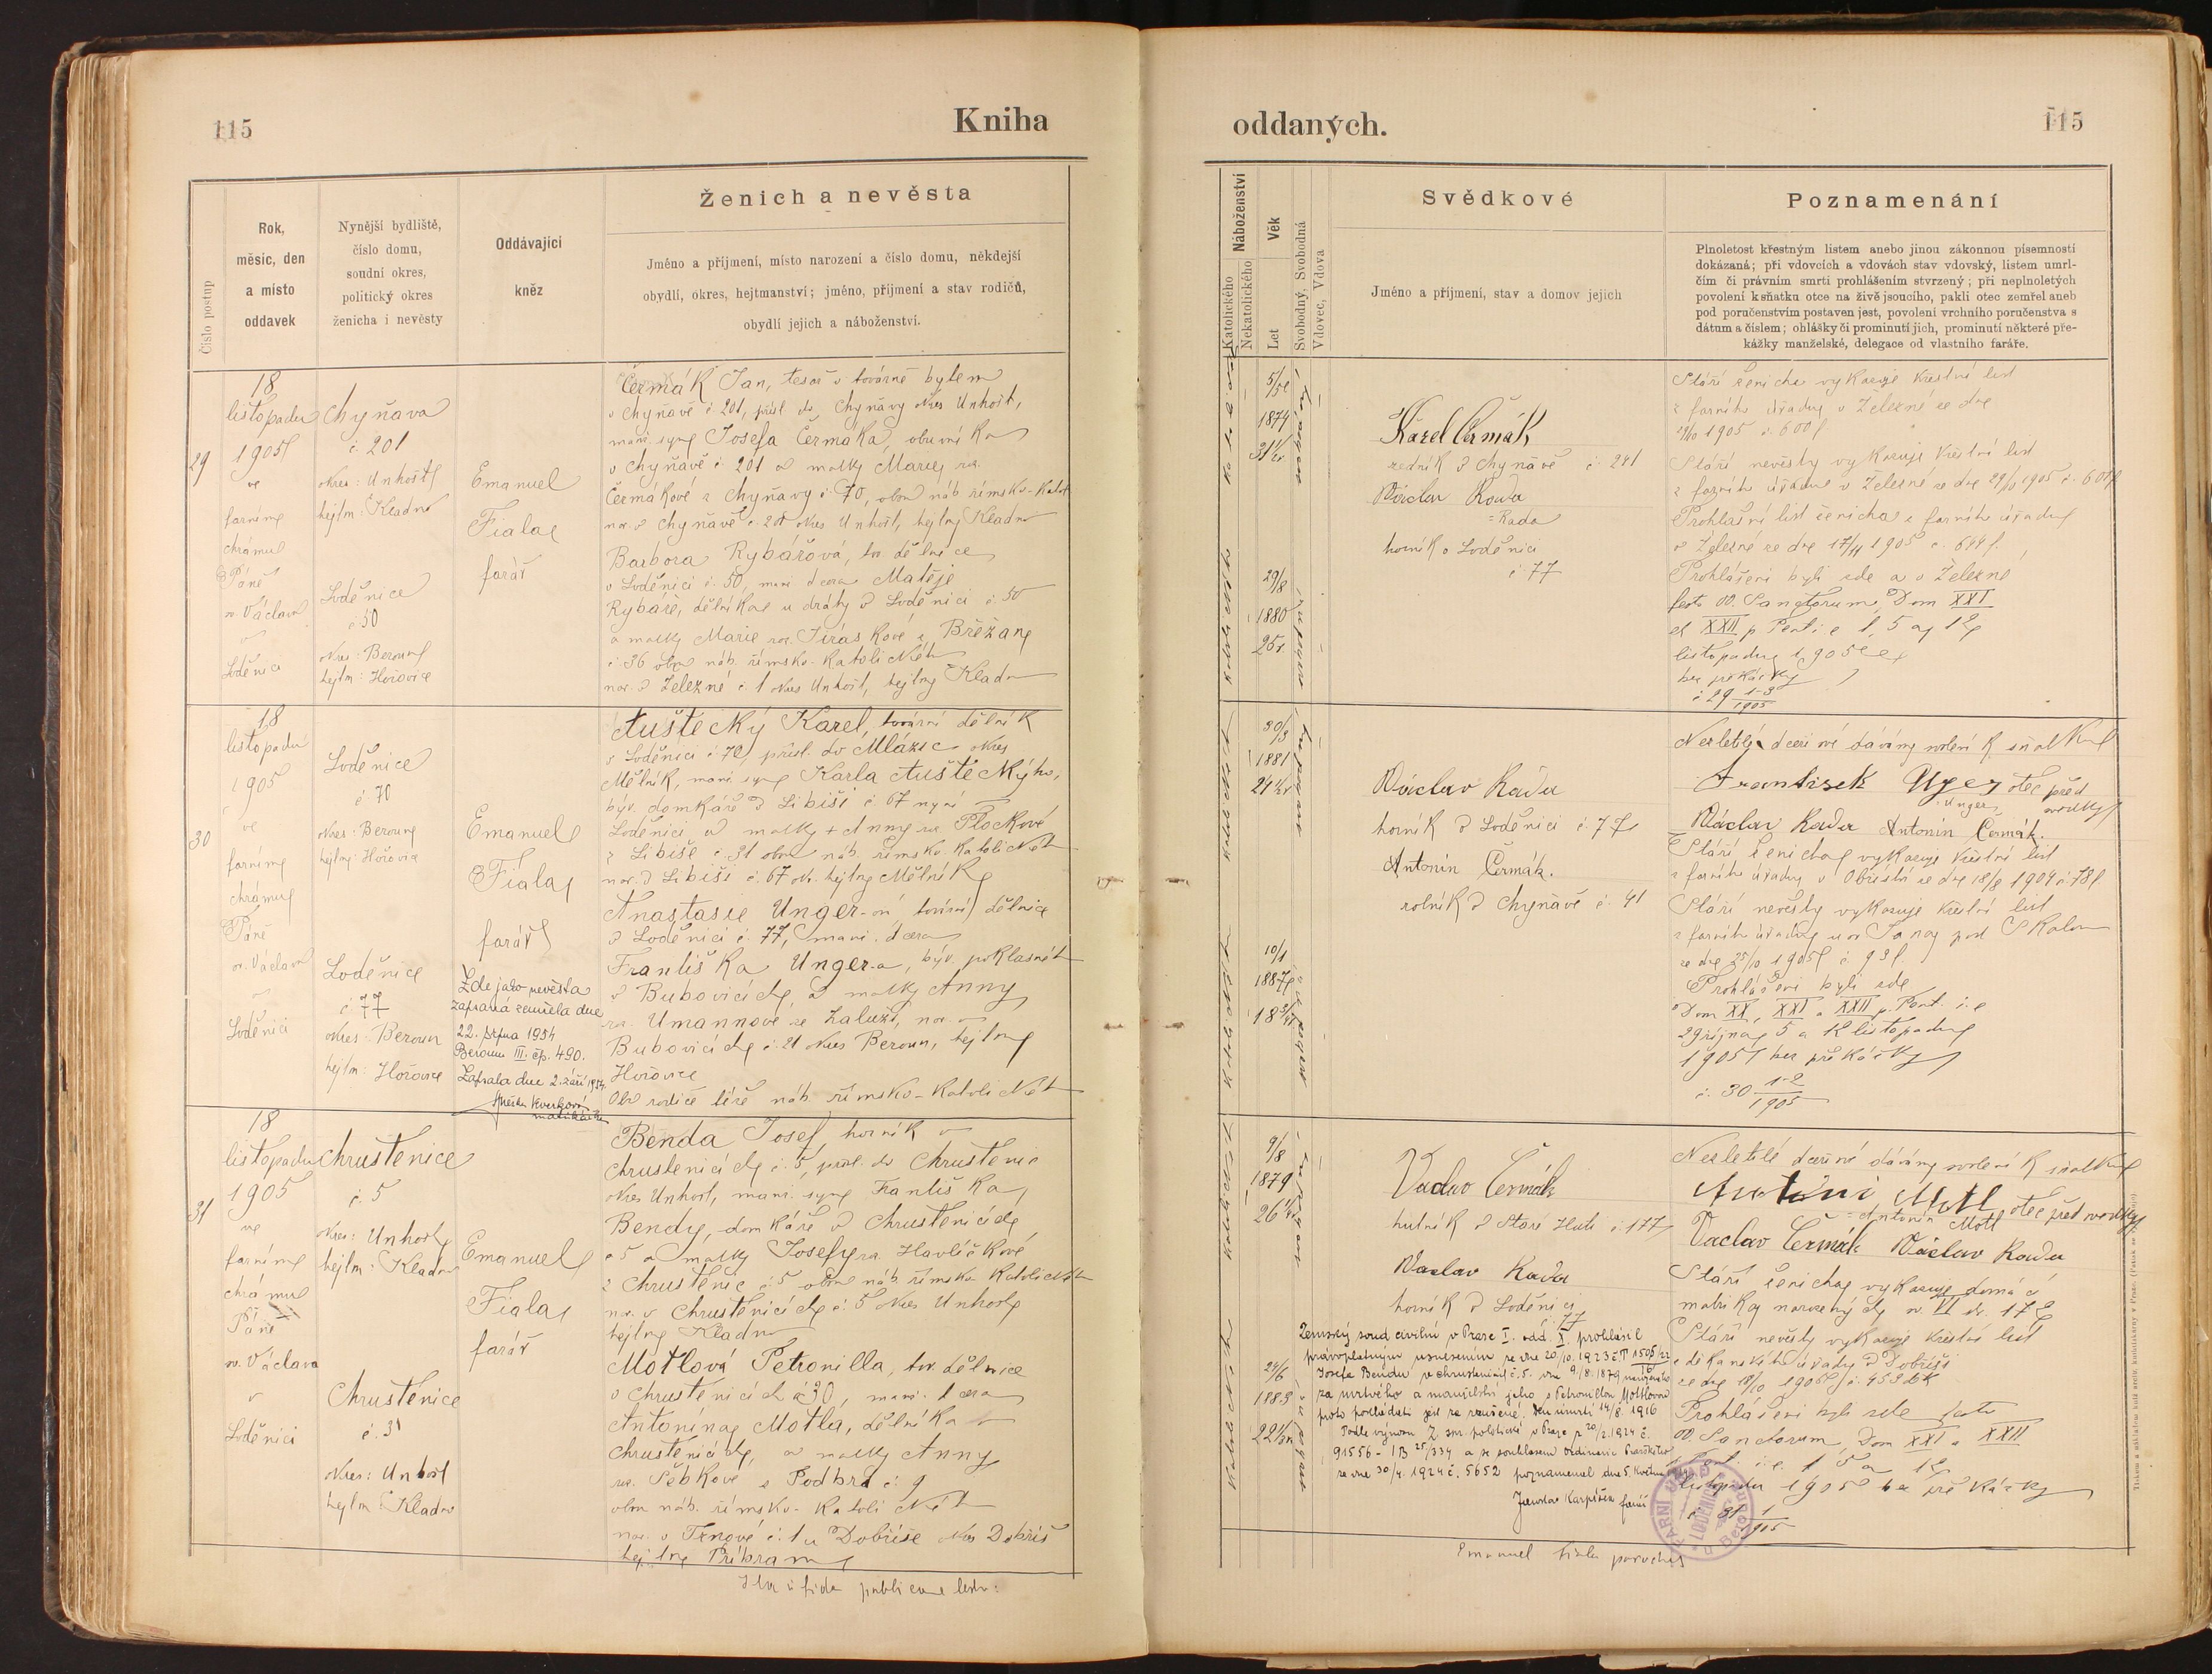 115
Kniha
oddaných.
115
Číslo postup
Rok,
měsíc, den
a místo
oddavek
Nynější bydliště,
číslo domu,
soudní okres,
politický okres
ženicha i nevěsty
Oddávající
kněz
Ženich a nevěsta
Jméno a příjmení, místo narození a číslo domu, někdejší
obydlí, okres, hejtmanství; jméno, příjmení a stav rodičů,
obydlí jejich a náboženství.
Náboženství
Katolického
Nekatolického
Věk
Let
Svobodný, Svobodná
Vdovec, Vdova
Svědkové
Jméno a příjmení, stav a domov jejich
Poznamenání
Plnoletost křestným listem anebo jinou zákonnou písemností
dokázaná; při vdovcích a vdovách stav vdovský, listem umrl-
čím či právním smrti prohlášením stvrzený; při neplnoletých
povolení k sňatku otce na živě jsoucího, pakli otec zemřel aneb
pod poručenstvím postaven jest, povolení vrchního poručenstva s
dátum a číslem; ohlášky či prominutí jich, prominutí některé pře-
kážky manželské, delegace od vlastního faráře.
29
18
listopadu
1905
ve
farním
chrámu
Páně
sv. Václava
v
Loděnici
Chyňava
č. 201
okres: Unhošť
hejtm: Kladno
Loděnice
č. 50
okres: Beroun
hejtm: Hořovice
Emanuel
Fiala
farář
Čermák Jan, tesař v továrně bytem
v Chyňavě č. 201, přísl. do Chyňavy okres Unhošť,
manž. syn Josefa Čermáka, obuvníka
v Chyňavě č. 201 a matky Marie roz.
Čermákové z Chyňavy č. 70, obou náb. římsko-katol.
nar. v Chyňavě č. 201 okres Unhošť, hejtm. Kladno
Barbora Rybářová, tov. dělnice
v Loděnici č. 50, manž. dcera Matěje
Rybáře, dělníka u dráhy v Loděnici č. 50
a matky Marie roz. Jiráskové z Břežan
č. 36 obou náb. římsko-katolického
nar. v Železné č. 1 okres Unhošť, hejtm. Kladno
5/5
1874
31 1/2 r.
29/8
1880
25 r.
Karel Čermák
řezník v Chyňavě č. 241
Václav Rouda
= Rada
horník v Loděnici
č. 77
Stáří ženicha vykazuje křestní list
z farního úřadu v Železné ze dne
29/10 1905 č. 600
Stáří nevěsty vykazuje křestní list
z farního úřadu v Železné ze dne 29/10 1905 č. 601
Prohlášní list ženicha z farního úřadu
v Železné ze dne 17/11 1905 č. 644
Prohlášeni byli zde a v Železné
festo OO. Sanctorum, Dom XXI
et XXII p. Pent i. e. 1, 5 a 12
listopadu 1905
bez překážky
č. 29 1-3/1905
30
18
listopadu
1905
ve
farním
chrámu
Páně
sv. Václava
v
Loděnici
Loděnice
č. 70
okres: Beroun
hejtm: Hořovice
Loděnice
č. 77
okres: Beroun
hejtm: Hořovice
Emanuel
Fiala
farář
Zde jako nevěsta
zapsaná zemřela dne
22. srpna 1954
Beroun III. čp. 490.
Zapsala dne 2. září 1954.
matrikářka
Auštecký Karel, tovární dělník
v Loděnici č. 70, přísl. do Mlázic okres
Mělník, manž. syn Karla Aušteckého,
býv. domkáře v Libiši č. 67 nyní v
Loděnici a matky + Anny roz. Flockové
z Libiše č. 31 obou náb. římsko-katolického
nar. v Libiši č. 67 ok. hejtm. Mělník
Anastasie Unger-ová, tovární dělnice
v Loděnici č. 77, manž. dcera
Františka Unger-a, býv. poklasného
v Bubovicích, a matky Anny
roz. Umannové ze Zaluží, nar. v
Bubovicích č. 21 okres Beroun, hejtm.
Hořovice
Oba rodiče téže náb. římsko-katolického
30/3
1881
24 1/2 r.
10/1
1887
18 3/4 r.
Václav Rada
horník v Loděnici č. 77
Antonín Čermák.
rolník v Chyňavě č. 41
Nezletilé dceři své dávám svolení k sňatku
František Unger otec před
Unger svědky
Václav Rada Antonín Čermák.
Stáří ženicha vykazuje křestní list
z farního úřadu v Obříství ze dne 18/8 1904 č. 78
Stáří nevěsty vykazuje křestní list
z farního úřadu u sv. Jana pod Skalou
ze dne 25/10 1905 č. 93
Prohlášeni byli zde
Dom XX, XXI a XXII p. Pent. i. e.
29 října, 5 a 12 listopadu
1905 bez překážky
č. 30 1-2/1905
31
18
listopadu
1905
ve
farním
chrámu
Páně
sv. Václava
v
Loděnici
Chrustenice
č. 5
okres: Unhošť
hejtm: Kladno
Chrustenice
č. 31
okres: Unhošť
hejtm: Kladno
Emanuel
Fiala
farář
Benda Josef, horník v
Chrustenicích č. 5, přísl. do Chrustenic
okres Unhošť, manž. syn Františka
Bendy, domkáře v Chrustenicích
č. 5 a matky Josefy roz. Havlíčkové
z Chrustenic č. 5 obou náb. římsko katolického
nar. v Chrustenicích č. 5 okres Unhošť
hejtm. Kladno
Motlová Petronilla, tov. dělnice
v Chrustenicích č. 30, manž. dcera
Antonína Motla, dělníka v
Chrustenicích, a matky Anny
roz. č. 9
obou náb. římsko-katolického
nar. v Trnové č. 1 u Dobříše okres Dobříš
hejtm. Příbram
9/8
1879
26 1/4 r.
24/6
1883
22 1/3 r.
Vaclav Čermák
hutník v Staré Huti č. 177
Vaclav Rada
horník v Loděnici
77
Zemský soud civilní v Praze I. odd. X. prohlásil
právoplatným usnesením ze dne 20/10. 1923 č. T 1505/22
Josefa Bendu, v Chrustenicích č. 5. dne 9/8. 1879 narozeného
za mrtvého a manželství jeho s Petronillou Motlovou
proto pokládati jest za zrušené. Den úmrtí 14/8. 1916
Podle výnosu Z. spr. politické v Praze z 20/2. 1924 č.
91556 - 1B 25/334 a se souhlasem Ordinariátu Pražského
ze dne 30/4. 1924 č. 5652 poznamenal dne 5. května
Jaroslav Karpíšek farář
Nezletilé dceři své dávám svolení k sňatku
Antonín Motl otec před svědky
= Antonín Motl
Vaclav Čermák Václav Rada
Stáří ženicha vykazuje domácí
matrika narozených sv. VI str. 172
Stáří nevěsty vykazuje křestní list
z děkanského úřadu v Dobříši
ze dne 18/10 1905 č. 453
Prohlášeni byli zde festo
OO. Sanctorum, Dom XXI a XXII
p. Pent. i. e. 1 5 a 12
listopadu 1905 bez překážky
č. 31 1/1905
FARNÍ ÚŘAD LODĚNICE u Berouna
Emanuel Fiala parochus